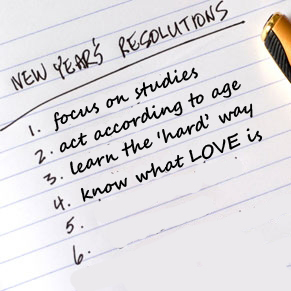 NEW YEAR'S RESOLUTIONS
1. focus on studies
2. act according to age
3. learn the 'hard' way
4. know what LOVE is
5.
6.